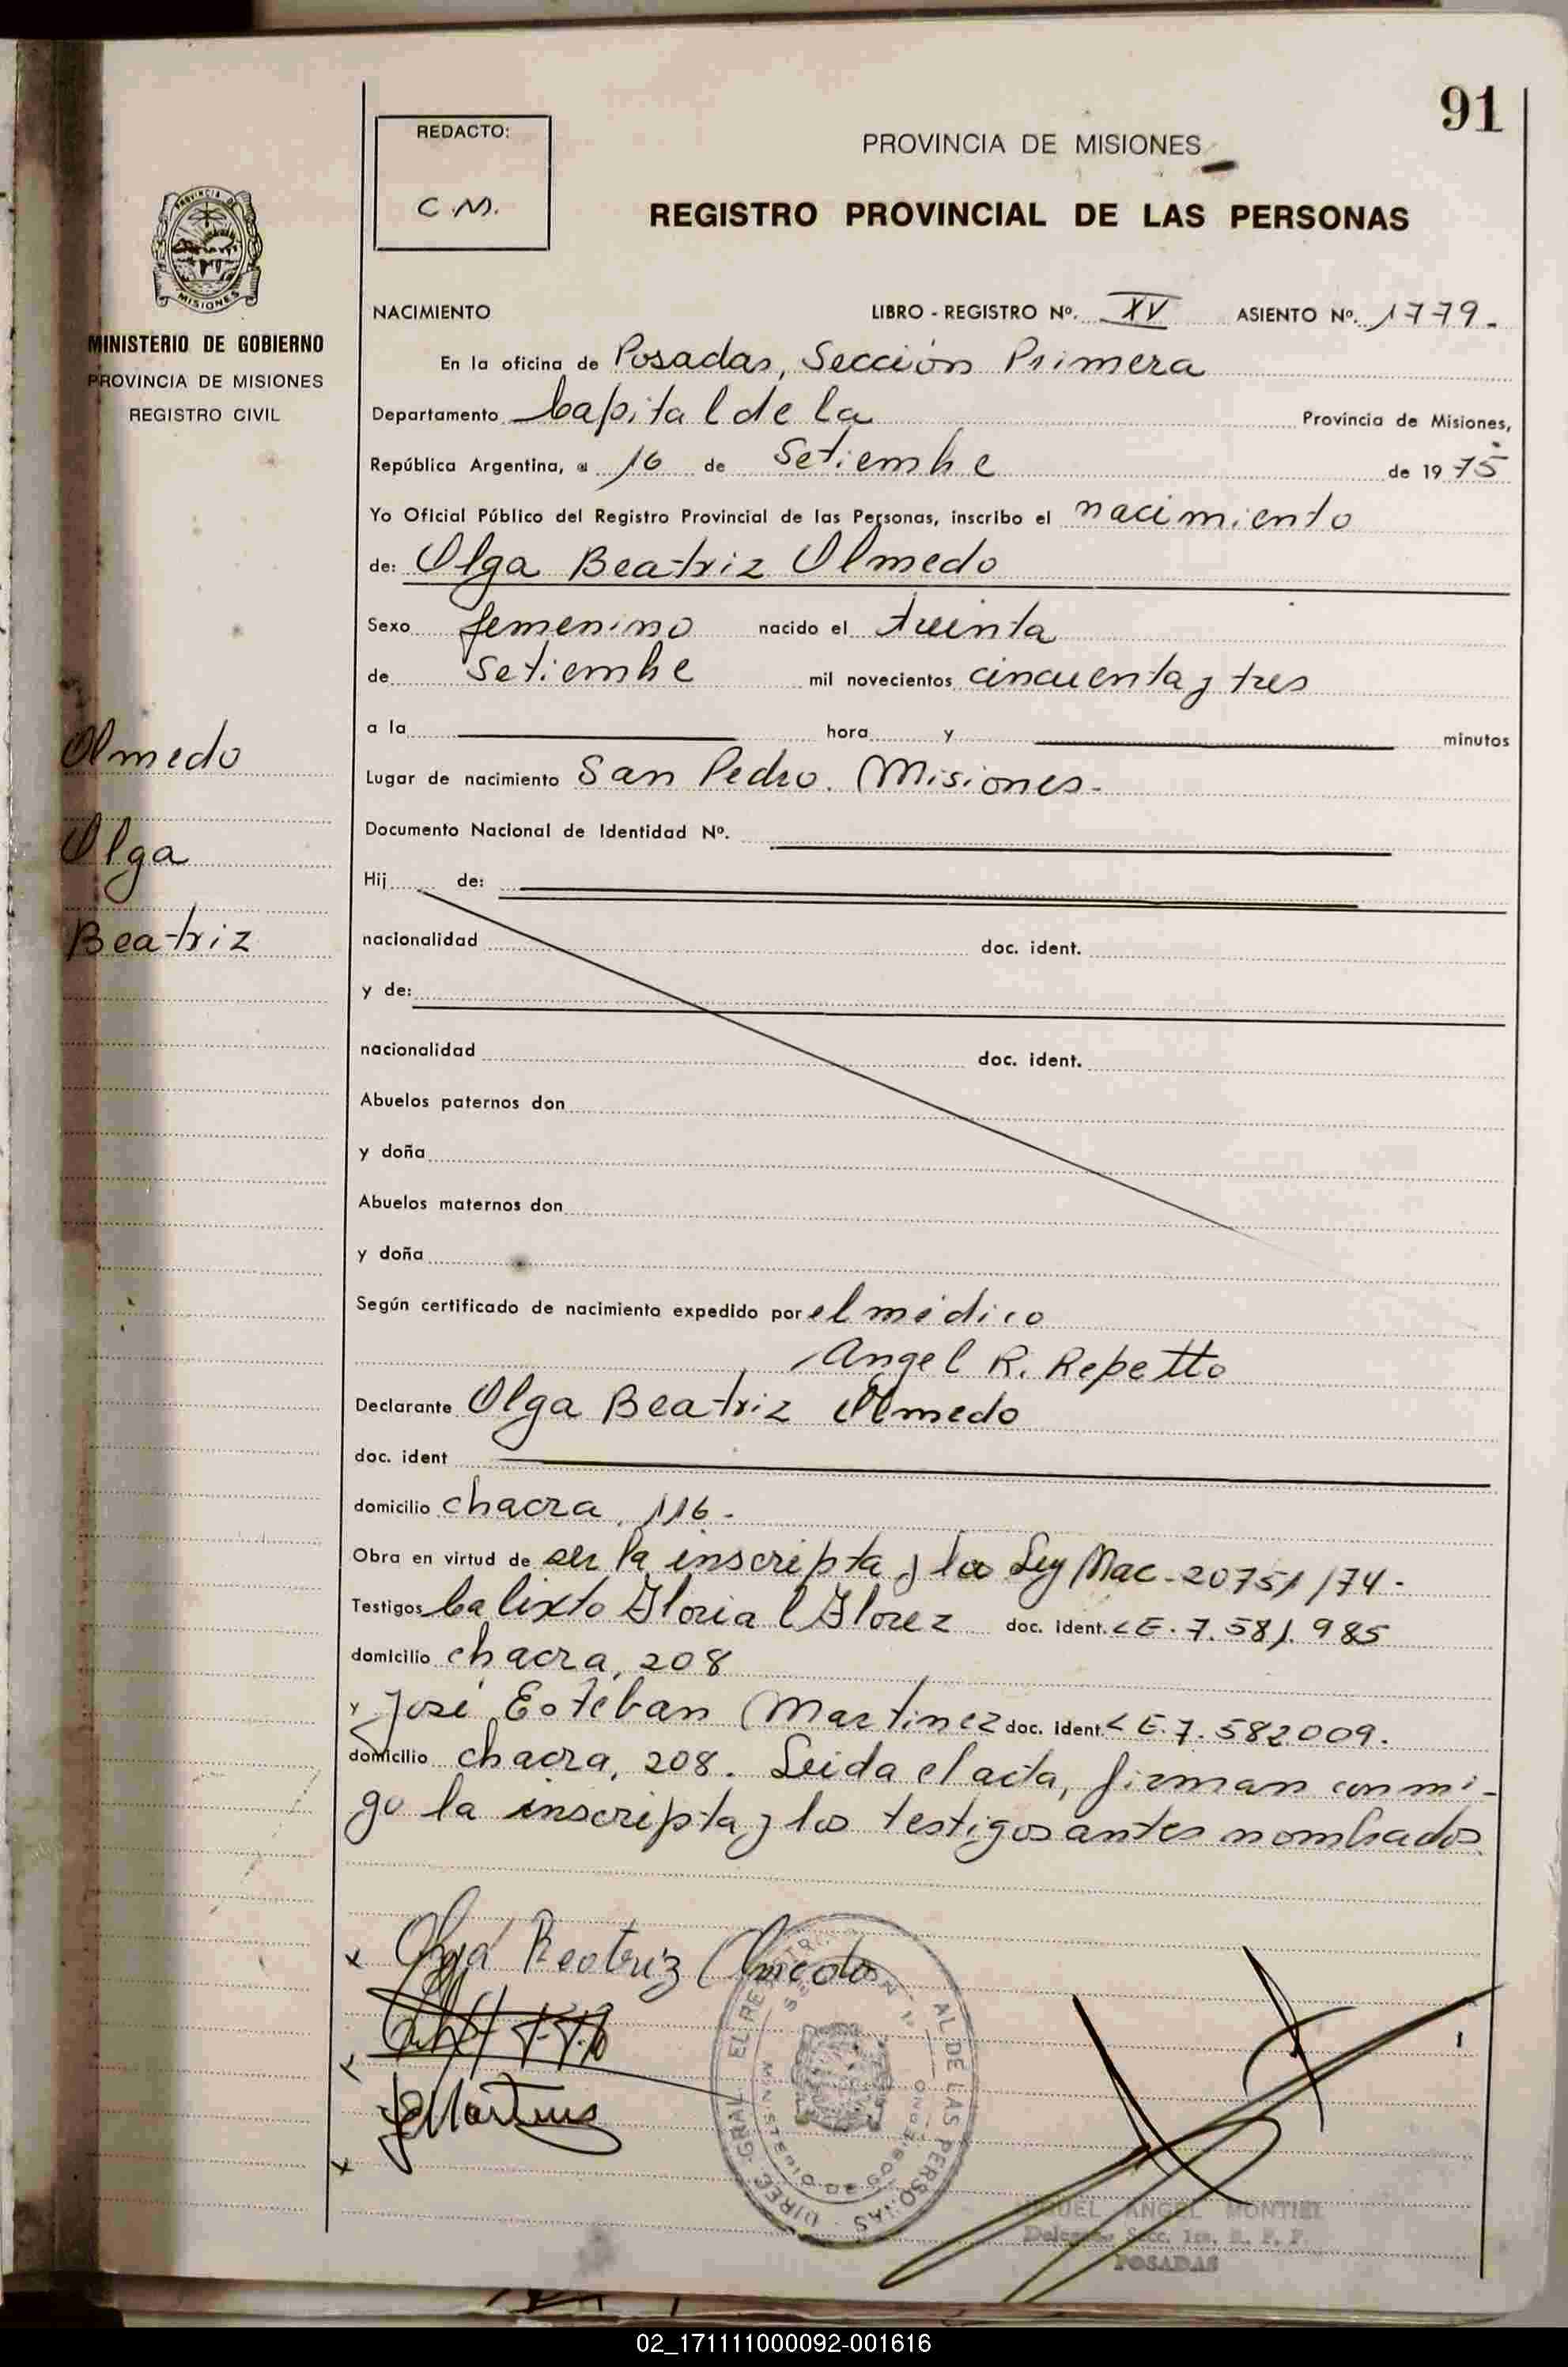 91
REDACTO:
C.M.
PROVINCIA DE MISIONES
REGISTRO PROVINCIAL DE LAS PERSONAS
PROVINCIA DE
MISIONES
MINISTERIO DE GOBIERNO
PROVINCIA DE MISIONES
REGISTRO CIVIL
Olmedo
Olga
Beatriz
NACIMIENTO LIBRO - REGISTRO Nº. XV ASIENTO Nº. 1779.
En la oficina de Posadas, Sección Primera
Departamento Capital de la Provincia de Misiones,
República Argentina, a 16 de Setiembre de 1975
Yo Oficial Público del Registro Provincial de las Personas, inscribo el nacimiento
de: Olga Beatriz Olmedo
Sexo femenino nacido el treinta
de Setiembre mil novecientos cincuenta y tres
a la hora y minutos
Lugar de nacimiento San Pedro. Misiones.
Documento Nacional de Identidad Nº.
Hij de:
nacionalidad doc. ident.
y de:
nacionalidad doc. ident.
Abuelos paternos don
y doña
Abuelos maternos don
y doña
Según certificado de nacimiento expedido por el médico
Angel R. Repetto
Declarante Olga Beatriz Olmedo
doc. ident
domicilio chacra, 116.
Obra en virtud de ser la inscripta y la Ley Nac. 20751/74.
Testigos Calixto doc. ident. LE. 7.581.985
domicilio chacra, 208
y José Esteban Martinez doc. ident. LE. 7.582009.
domicilio chacra, 208. Leida el acta, firman conmi-
go la inscripta y los testigos antes nombrados
x Olga Beatriz Olmedo
x
JEMartinez
x
DIREC. GRAL. EL RE AL DE LAS PERSONAS
MINISTERIO DE GOBIERNO
MIGUEL ANGEL MONTIEL
Delegado Secc. 1ra. R. P. P.
POSADAS
02_171111000092-001616